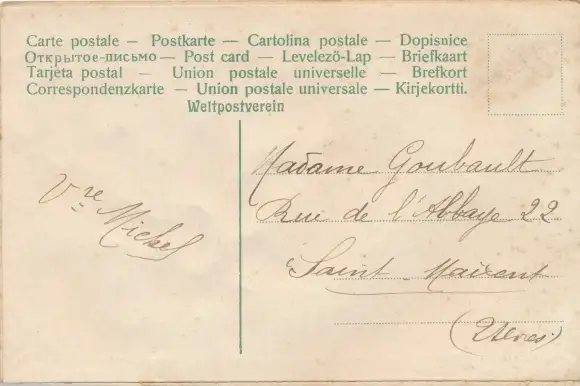 Carte postale — Postkarte — Cartolina postale — Dopisnice
Открытое-письмо — Post card — Levelező-Lap — Briefkaart
Tarjeta postal — Union postale universelle — Brefkort
Correspondenzkarte — Union postale universale — Kirjekortti.
Weltpostverein
Madame Goubault
Rue de l'Abbaye 22
Saint-Maixent
(2 Sèvres)
Vre Mickel